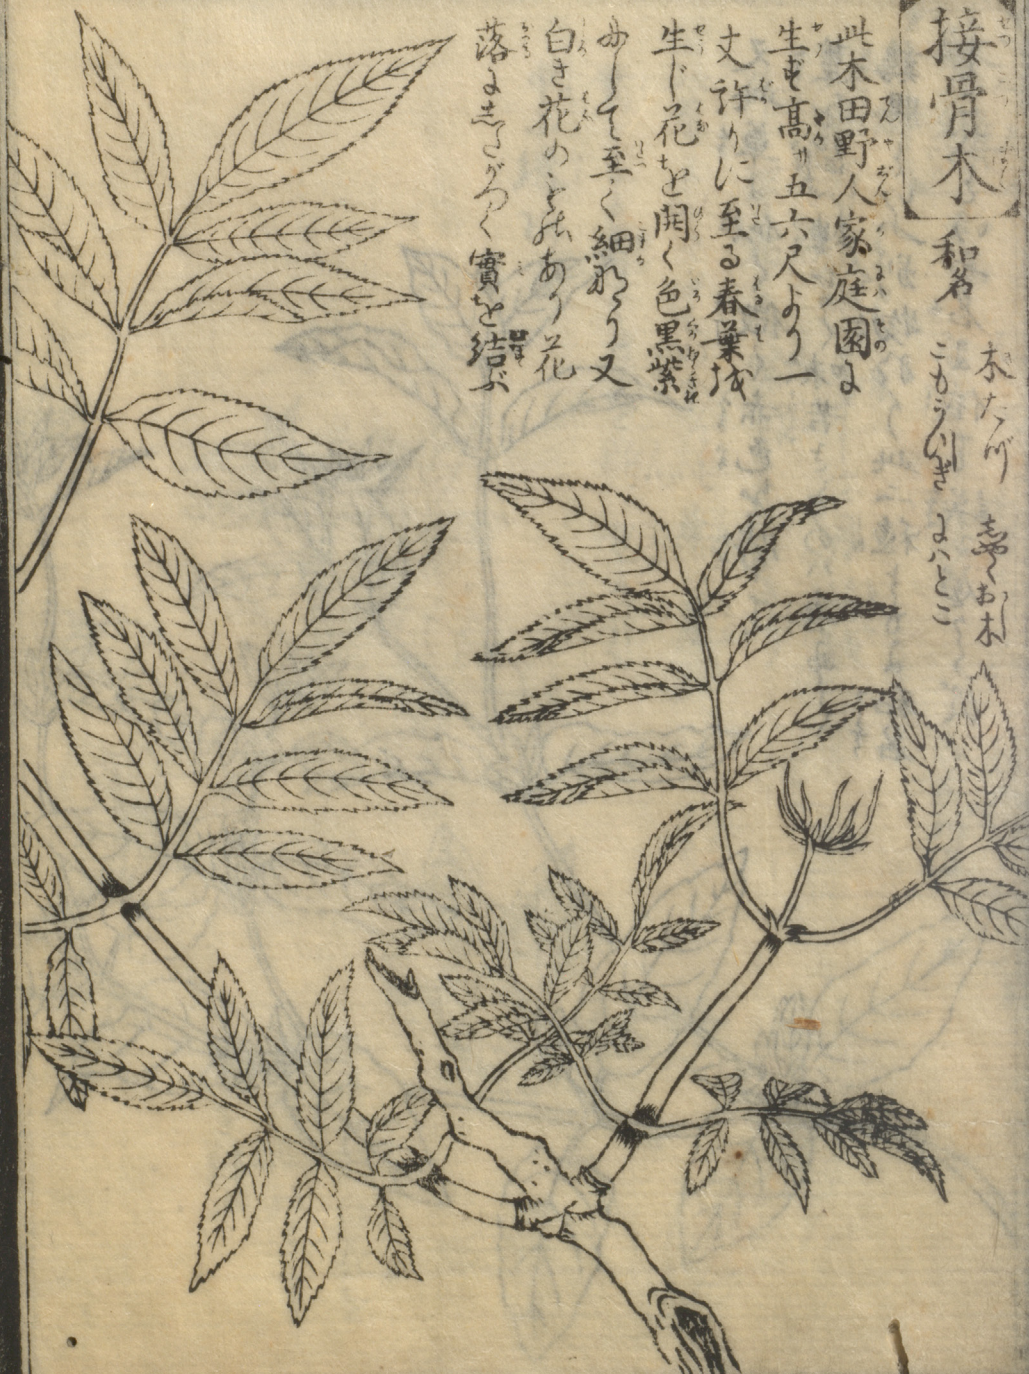 接骨木
和名 木たづ
こもうつぎ にハとこ
此木田野人家庭園に
生ず高サ五六尺より一
丈許りに至る春葉を
生じ花を開く色黒紫
にして至て細かなり又
白き花のものあり花
落てしたがつて實を結ぶ